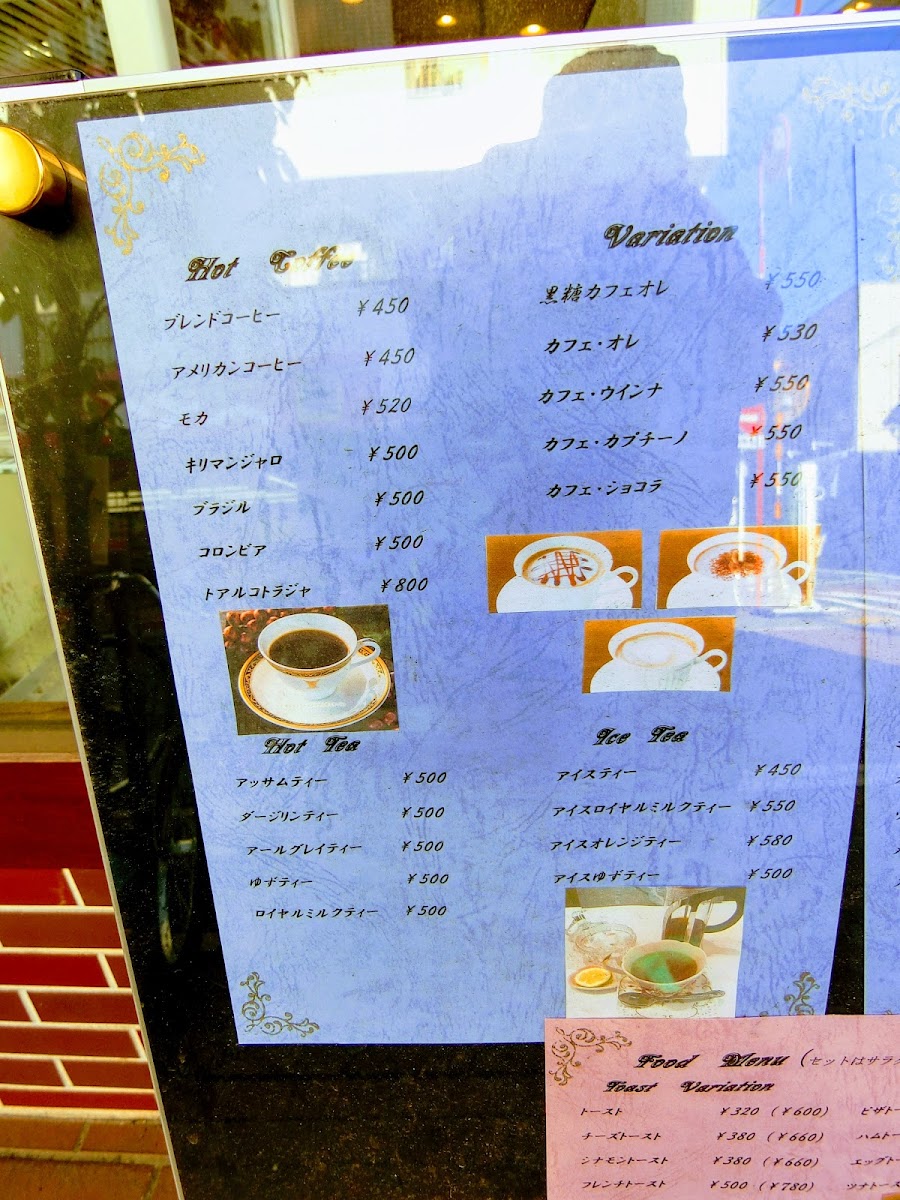 Hot Coffee
ブレンドコーヒー ¥450
アメリカンコーヒー ¥450
モカ ¥520
キリマンジャロ ¥500
ブラジル ¥500
コロンビア ¥500
トアルコトラジャ ¥800
Variation
黒糖カフェオレ ¥550
カフェ・オレ ¥530
カフェ・ウインナ ¥550
カフェ・カプチーノ ¥550
カフェ・ショコラ ¥550
Hot Tea
アッサムティー ¥500
ダージリンティー ¥500
アールグレイティー ¥500
ゆずティー ¥500
ロイヤルミルクティー ¥500
Ice Tea
アイスティー ¥450
アイスロイヤルミルクティー ¥550
アイスオレンジティー ¥580
アイスゆずティー ¥500
Food Menu (セットはサラ
Toast Variation
トースト ¥320 (¥600) ピザト
チーズトースト ¥380 (¥660) ハムトー
シナモントースト ¥380 (¥660) エッグトー
フレンチトースト ¥500 (¥780) ツナトース